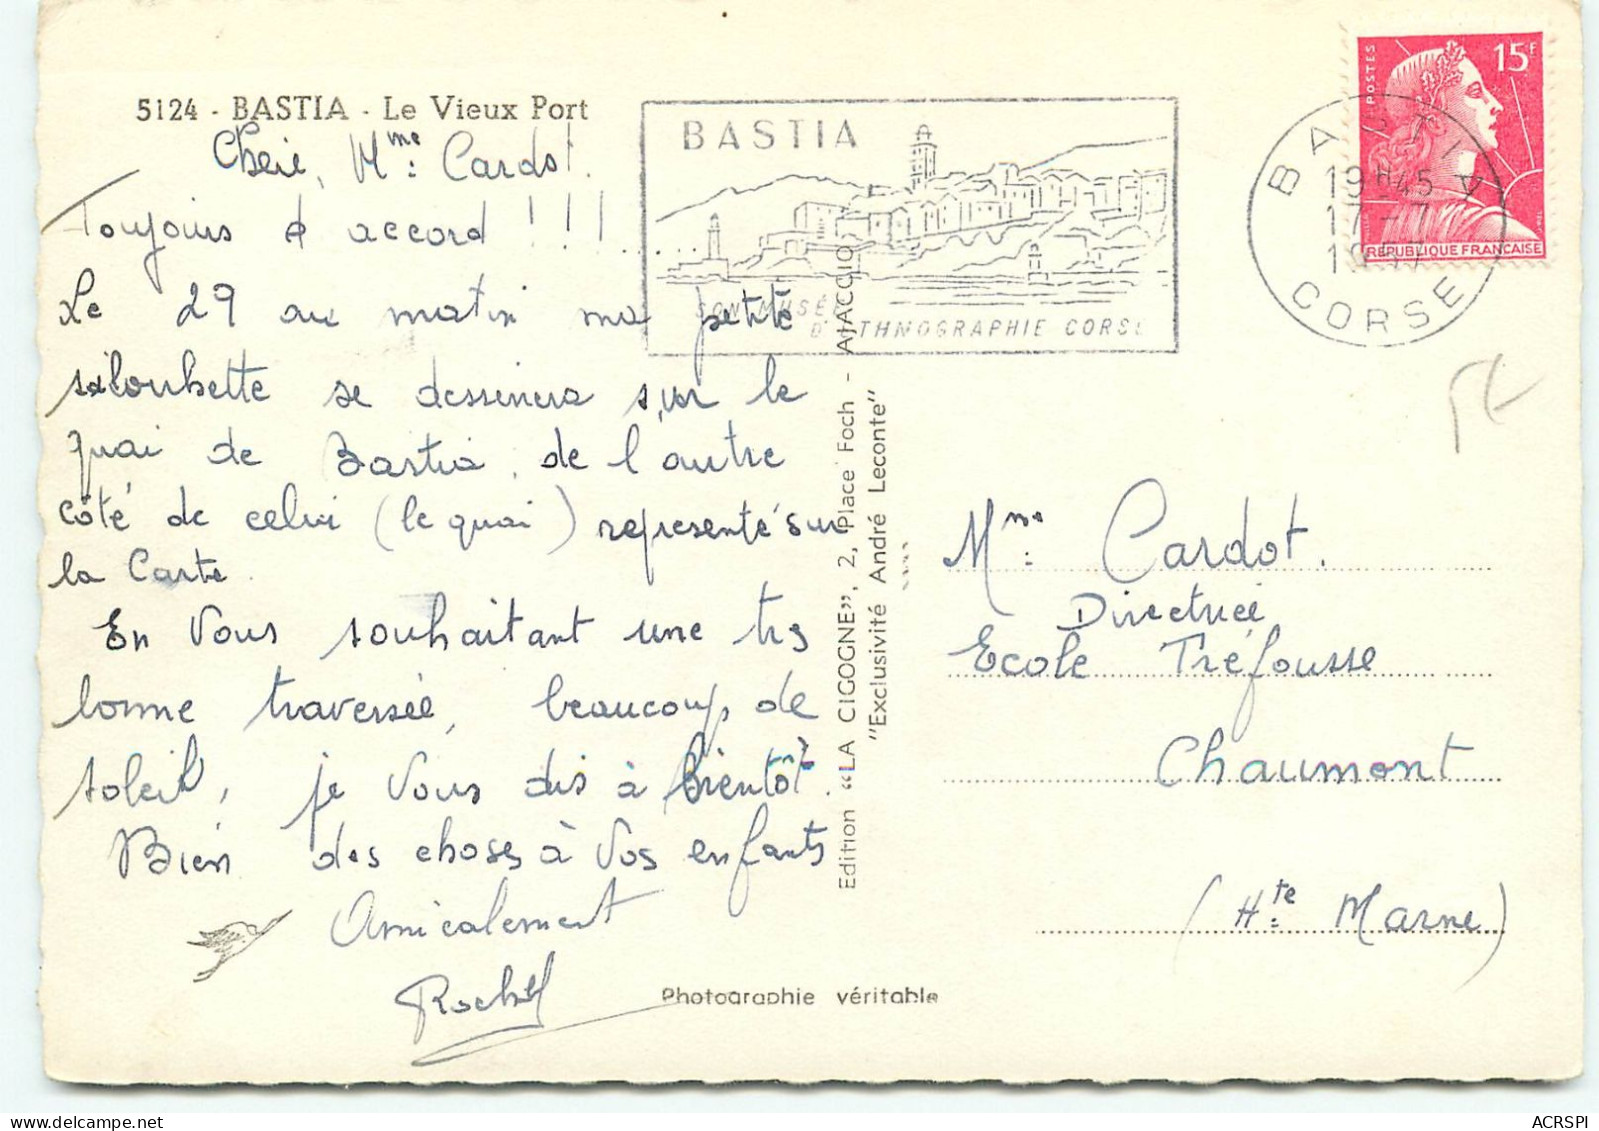 5124 - BASTIA - Le Vieux Port
Cherie, Mme: Cardot.
Toujours d'accord !!!...
Le 29 au matin ma petite
silouhette se dessinera sur le
quai de Bastia, de l'autre
côté de celui (le quai) representé sur
la Carte.
En vous souhaitant une trs
bonne traversée, beaucoup de
soleil, je vous dis à bientôt.
Bien des choses à vos enfants
Amicalement
BASTIA
SON MUSÉE
D'ETHNOGRAPHIE CORSE
POSTES
15F
REPUBLIQUE FRANCAISE
BASTIA
19H45
17-7
1957
CORSE
Edition "LA CIGOGNE", 2, Place Foch - AJACCIO
"Exclusivité André Leconte"
Mme: Cardot.
Directrice
Ecole Tréfousse
Chaumont
(Hte: Marne)
Photographie véritable
ACRSPI